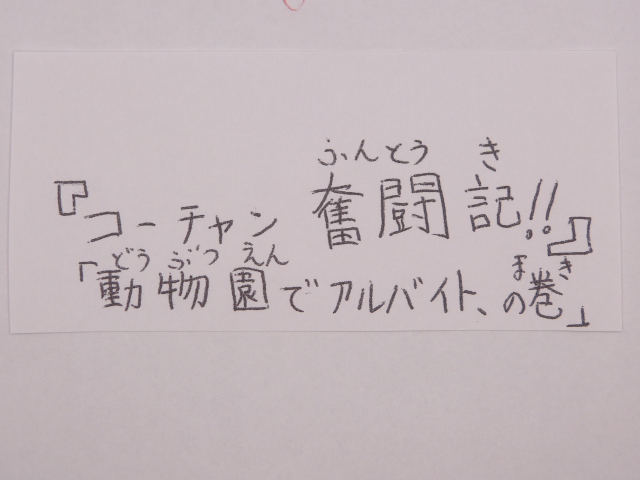 ふんとう き
『コーチャン 奮闘記!!』
どうぶつえん まき
「動物園でアルバイト、の巻」